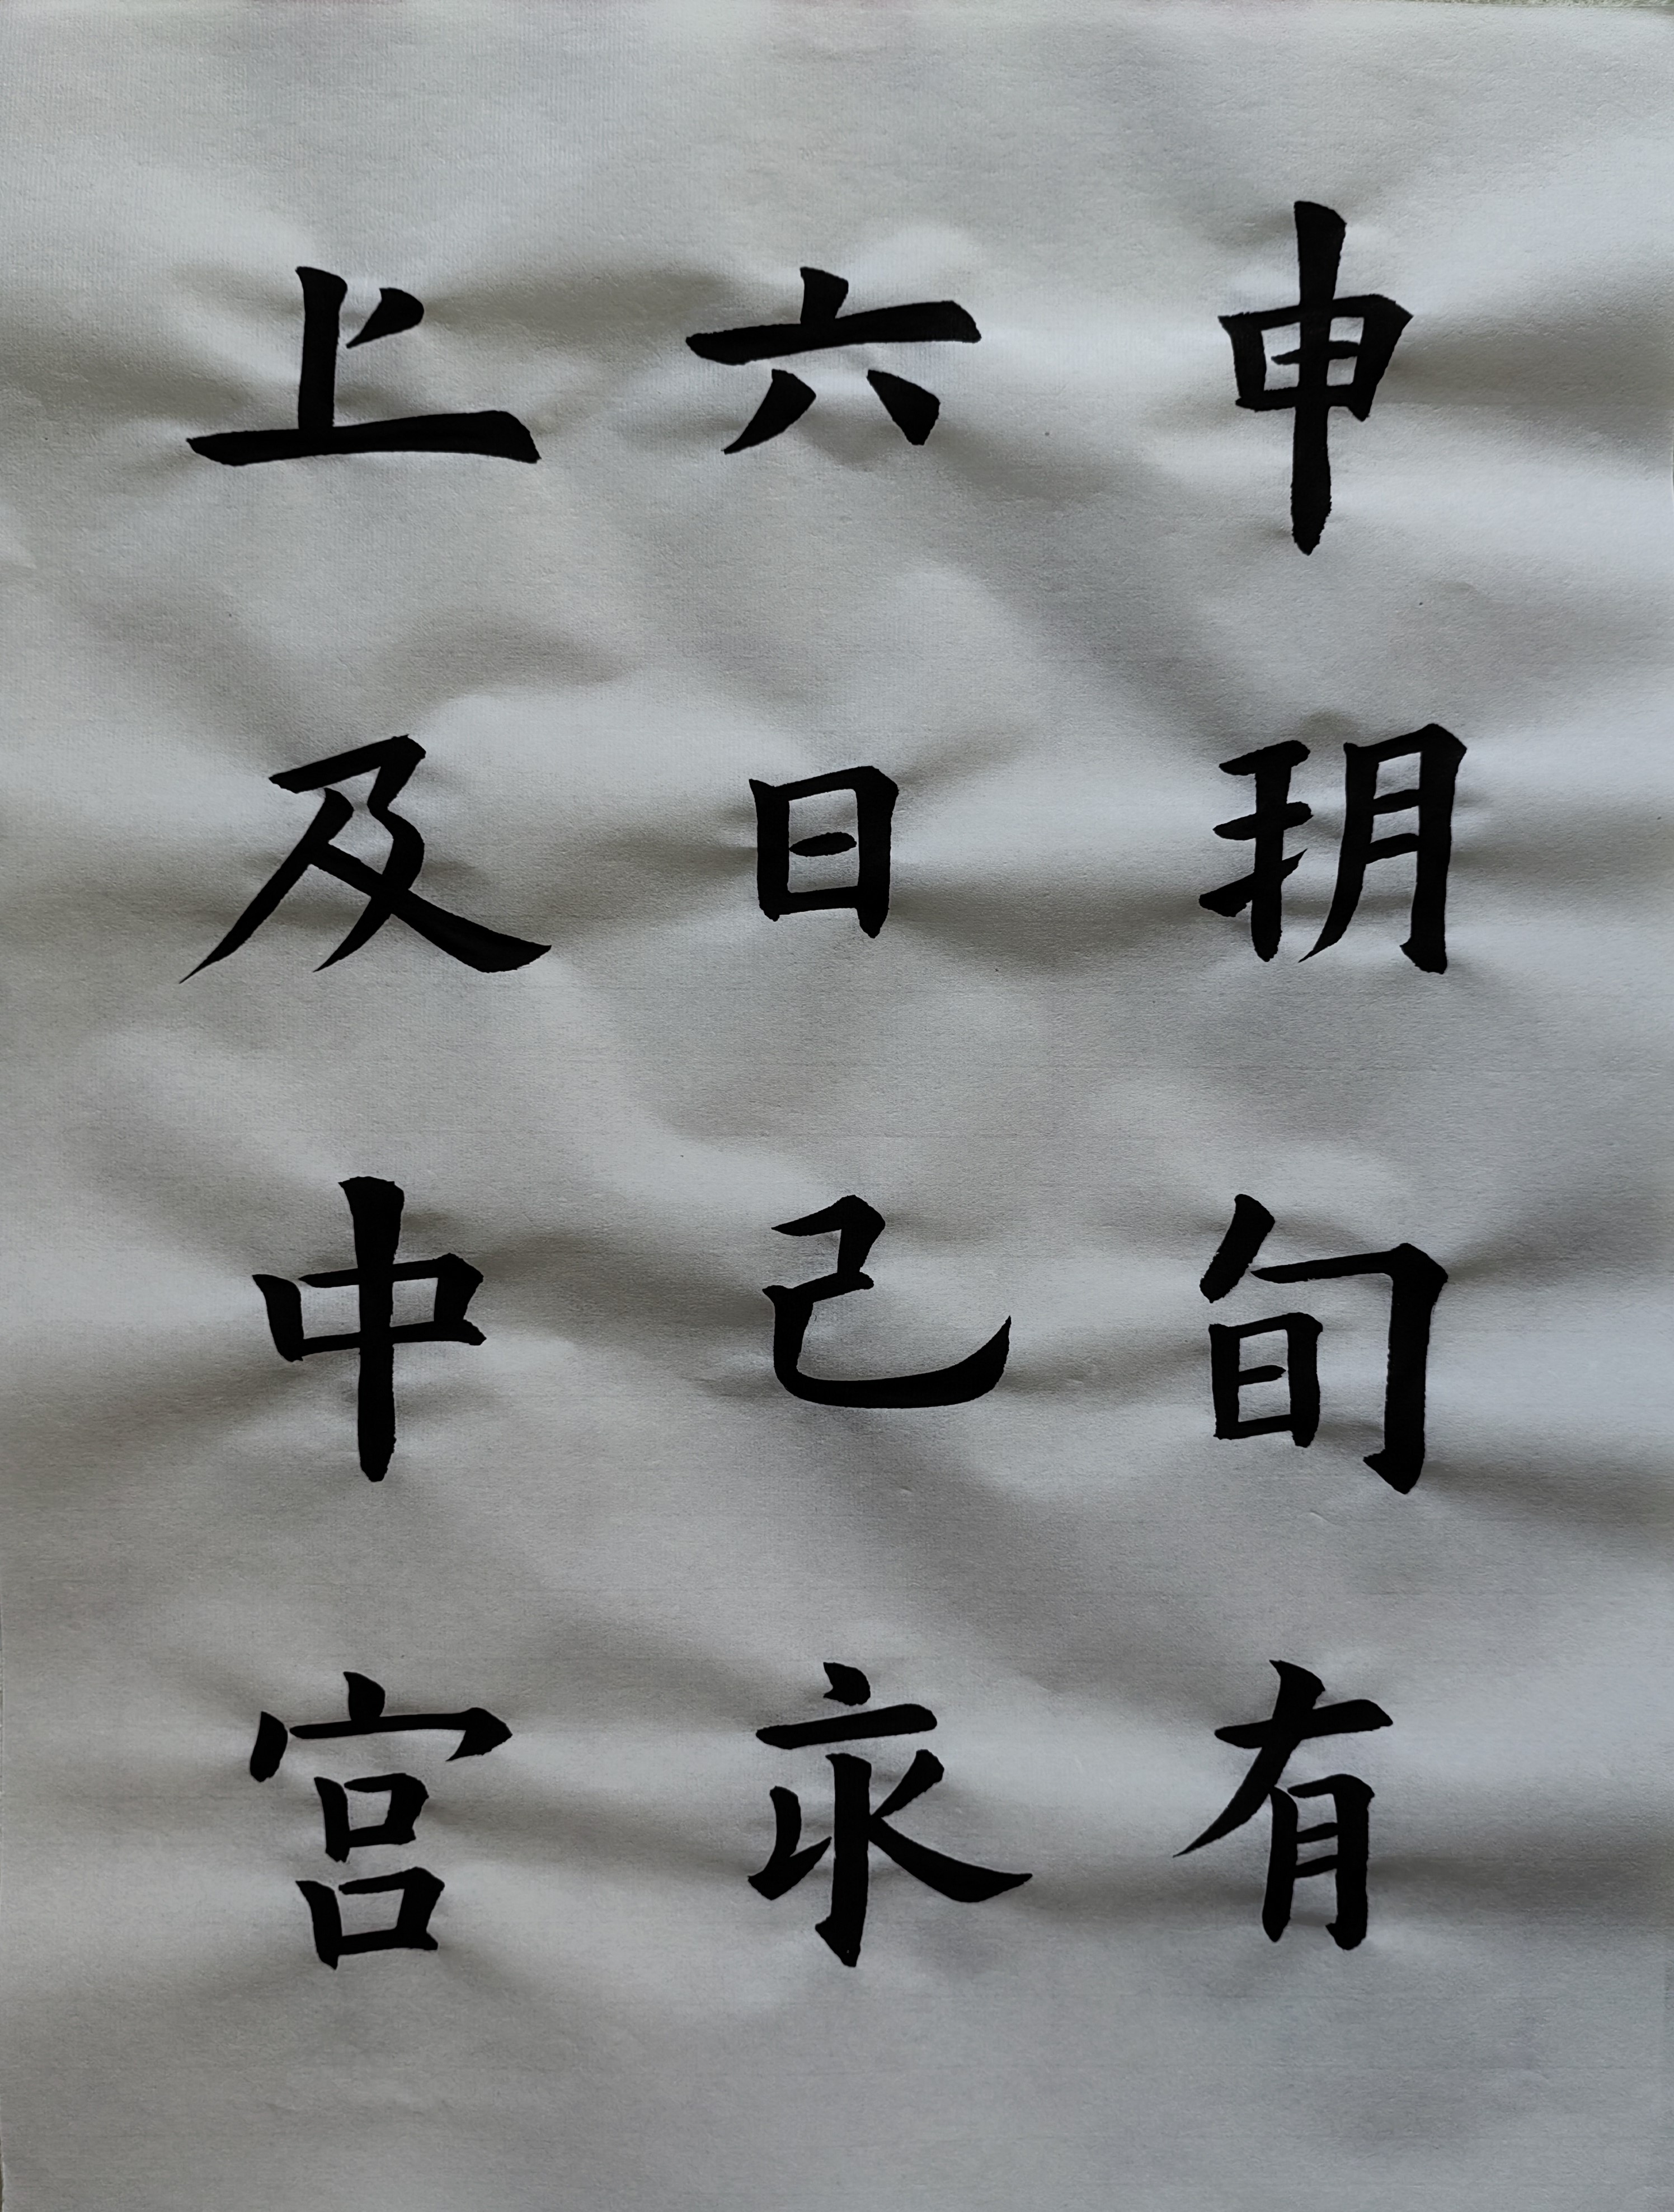 申朔旬有
六日己亥
上及中宫